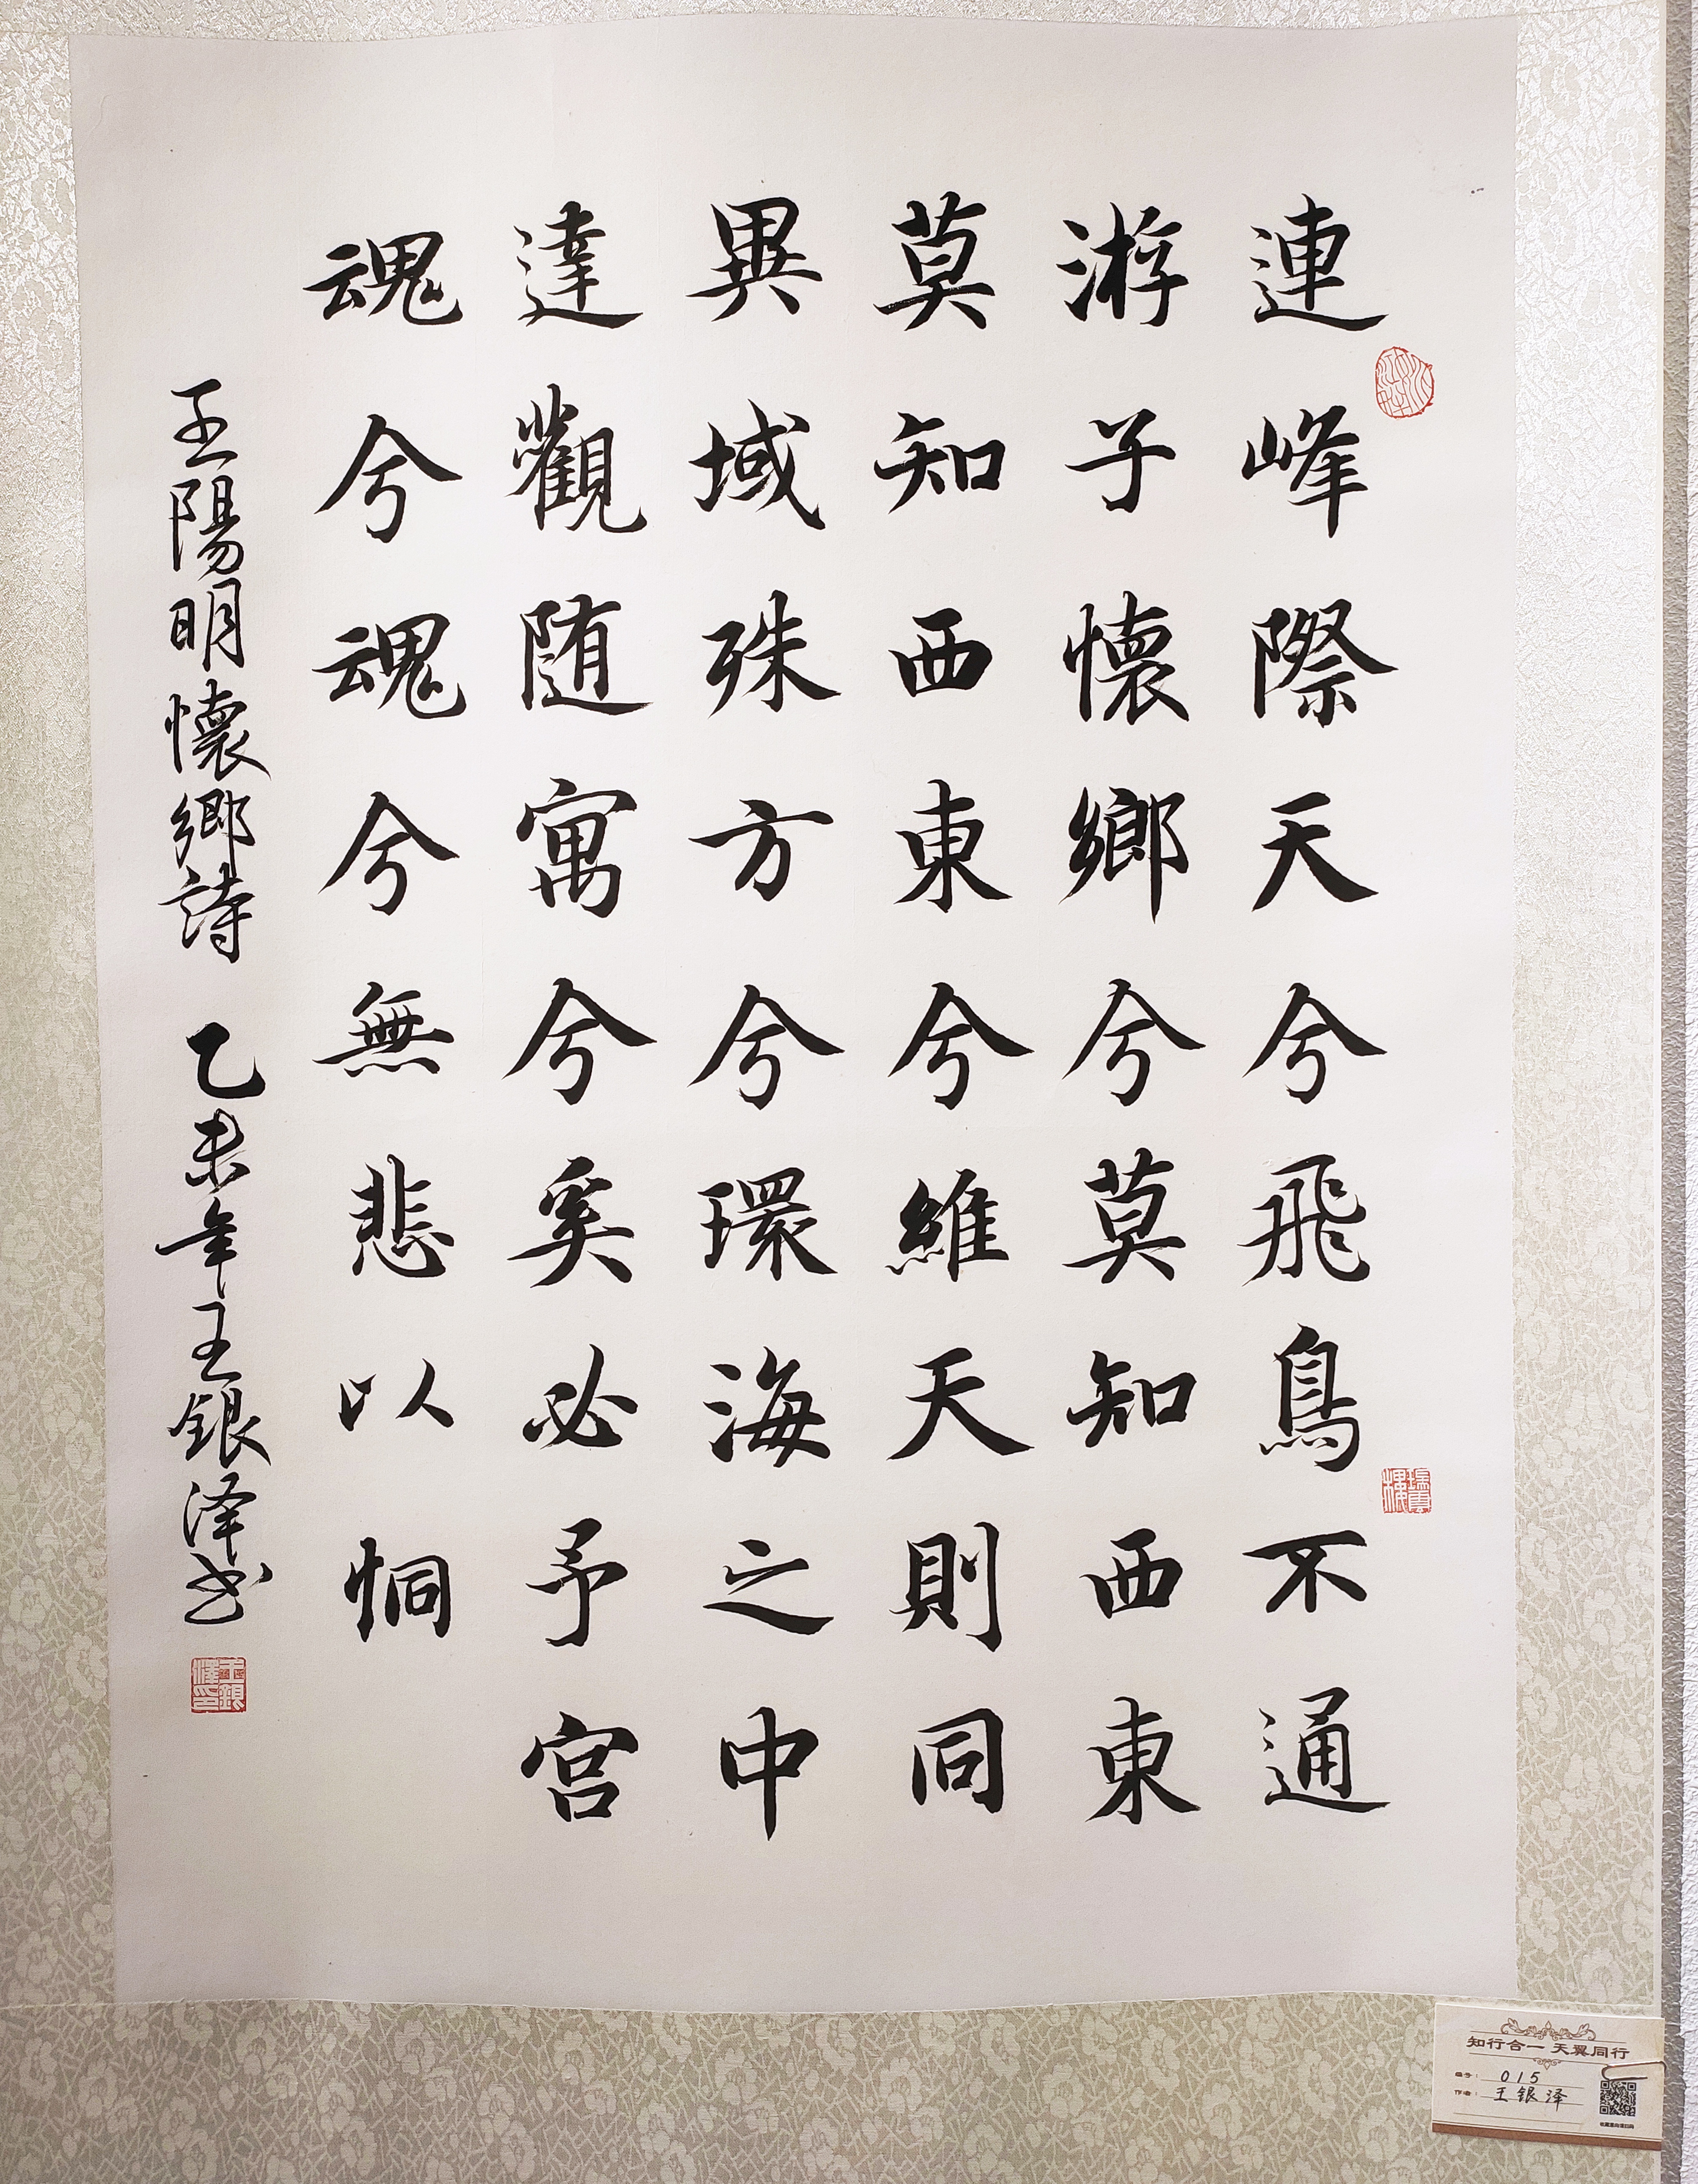 連峰際天兮飛鳥不通
游子懷鄉兮莫知西東
莫知西東兮維天則同
異域殊方兮環海之中
達觀随寓兮奚必予宫
魂兮魂兮無悲以恫
王陽明懷鄉詩 乙未年王銀泽书
王銀澤印
知行合一 天翼同行
编号： 015
作者： 王银泽